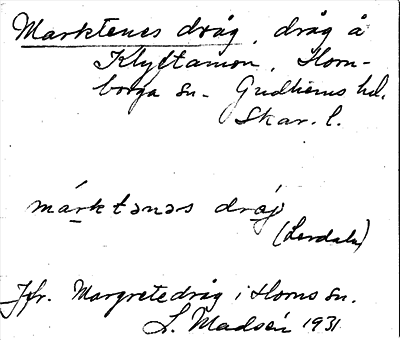 Marktenes dråg, dråg å
Klyftamon, Horn-
borga sn. Gudhems hd.
Skar. l.
márktənəs dråg
(Lerdala)
Jfr. Margretedråg i Horns sn.
L. Madsén 1931